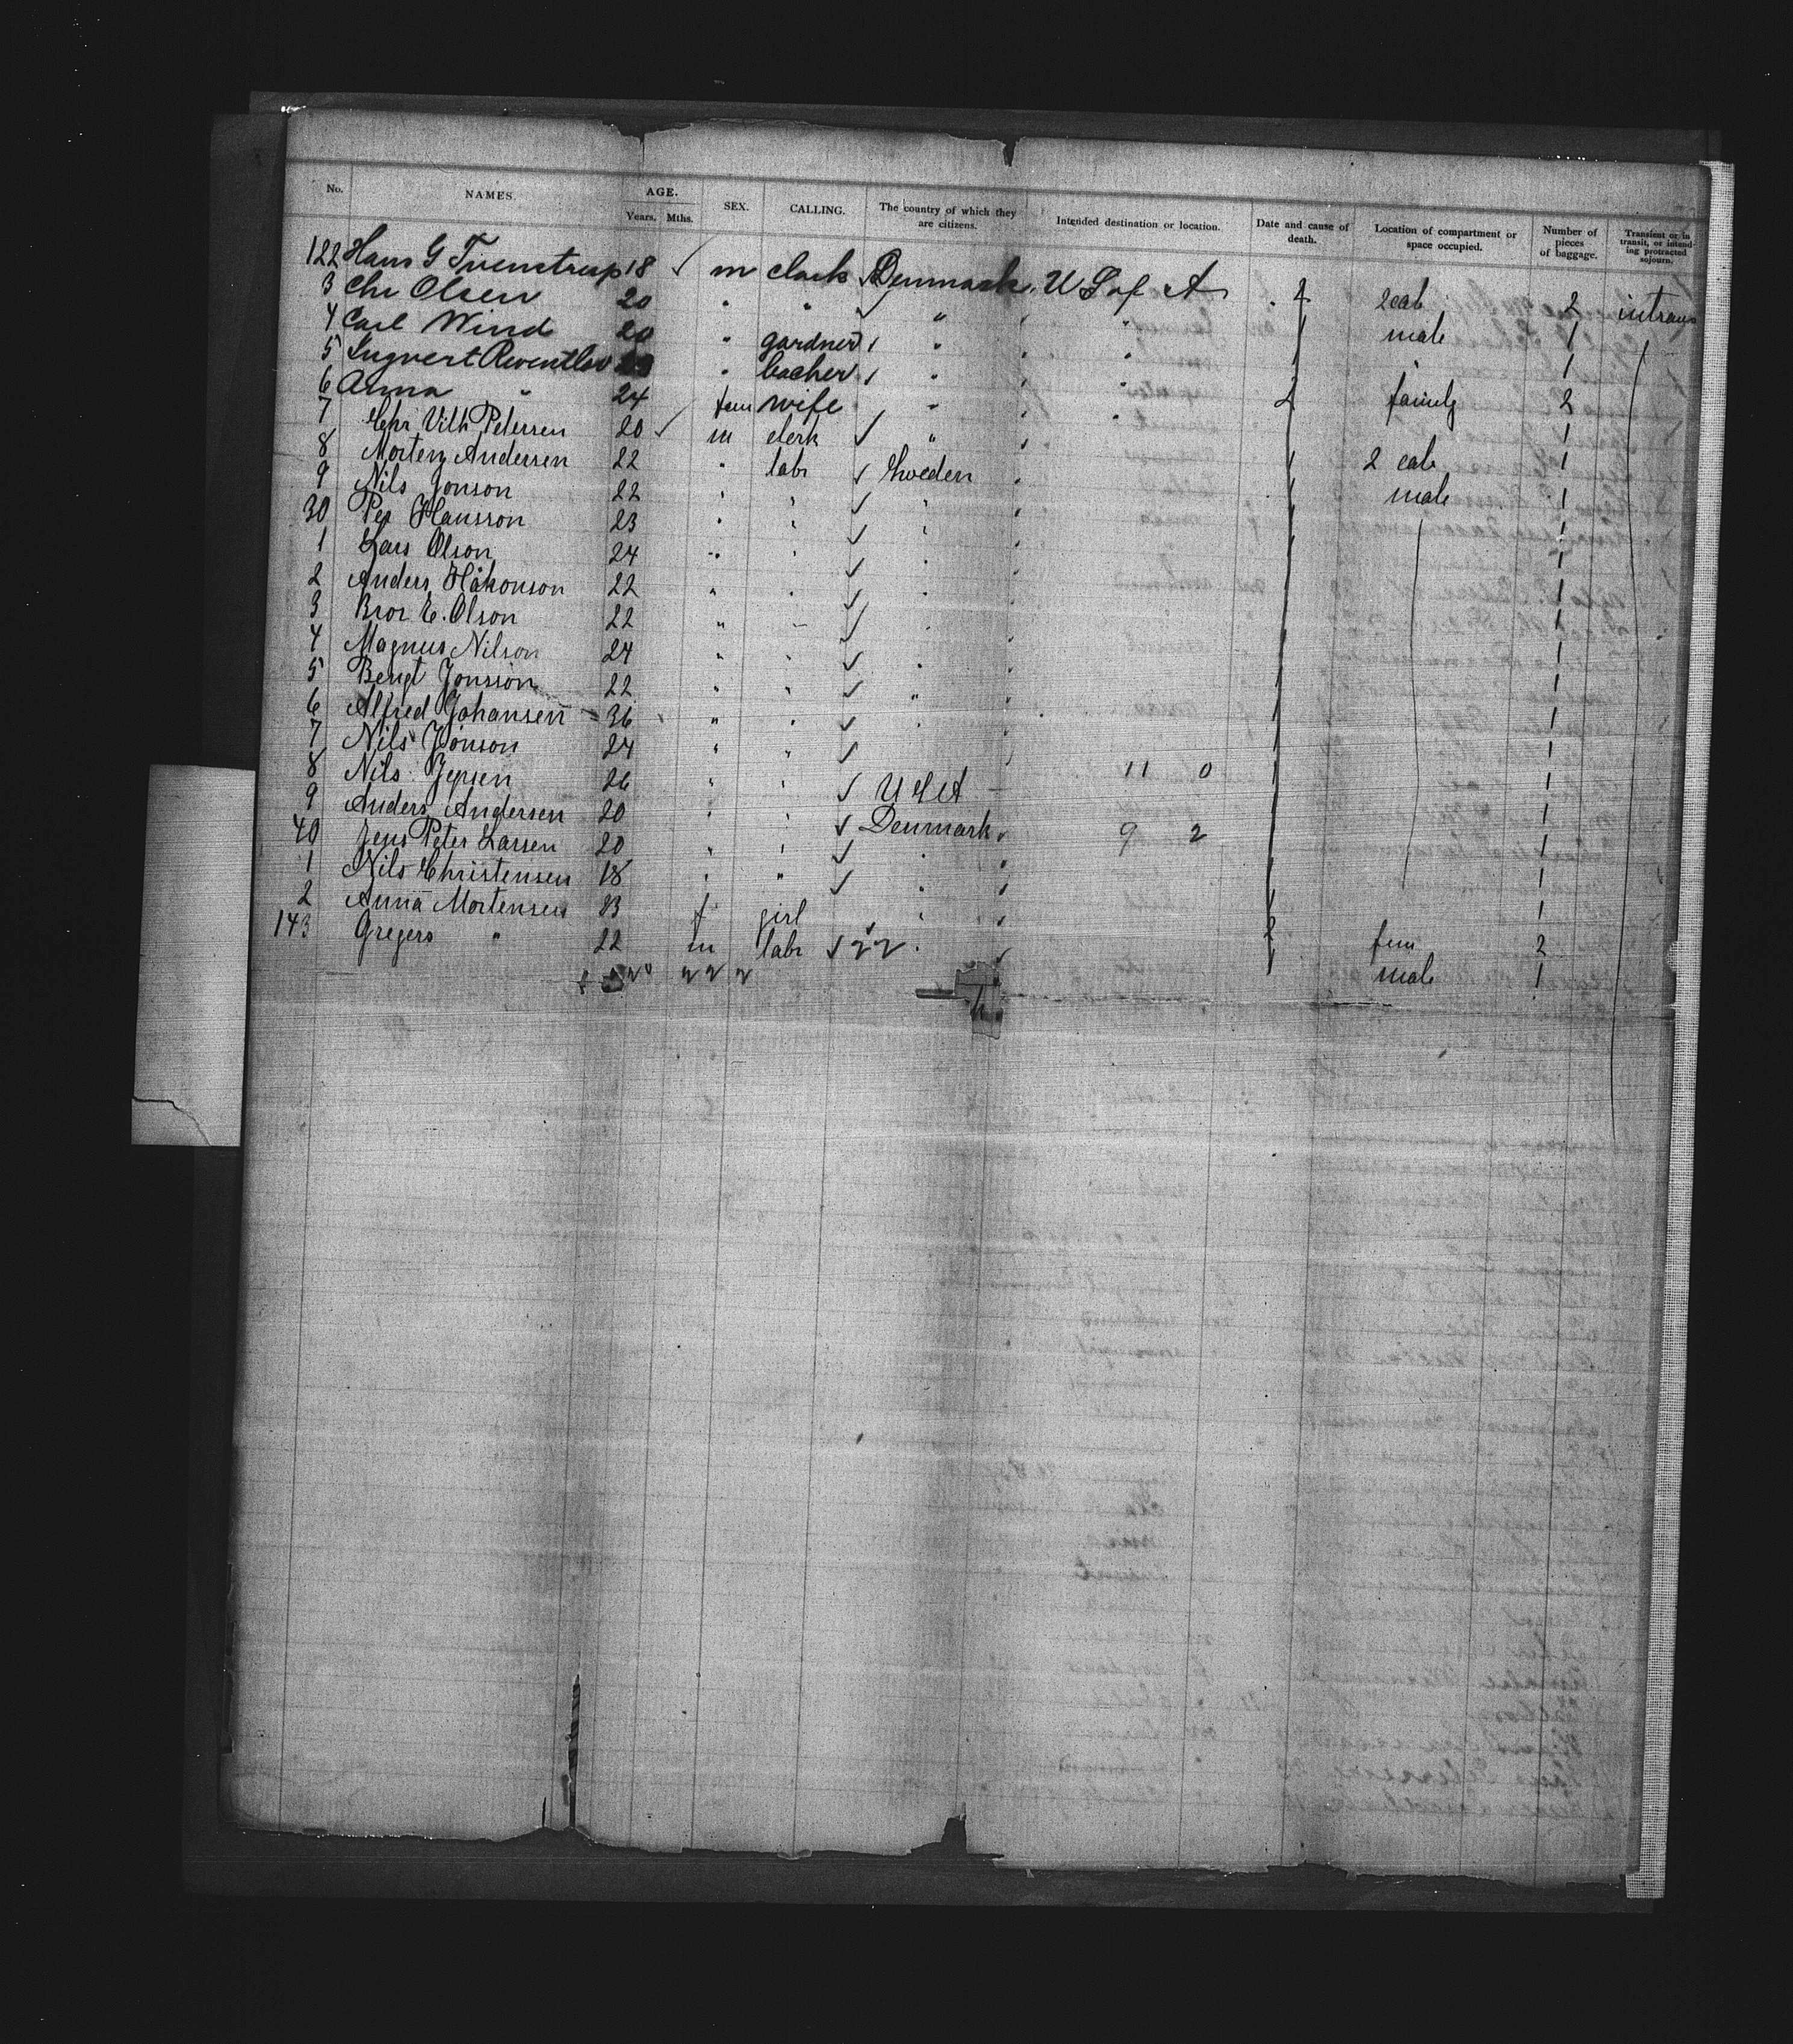 No. NAMES. AGE. Years. Mths. SEX. CALLING. The country of which they are citizens. Intended destination or location. Date and cause of death. Location of compartment or space occupied. Number of pieces of baggage. Transient or in transit, or intending protracted sojourn.
122 Hans G 18 ✓ m clark Denmark U S of A 2 2cab 2 intrans
3 Chr Olsen 20 " " ✓ " " 1 male 1
4 Carl Wind 20 " gardner " " 1 1
5 Ingvert Reventlov " bacher " "
6 Anna " 24 fem wife " " 2 family 2
7 Chr Vilh Petersen 20 ✓ m clerk ✓ " 1
8 Morten Andersen 22 " labr ✓ Sweden 1 2 cab 1
9 Nils Jonson 22 " " ✓ " 1 male 1
30 Per Hansson 23 " " ✓ " 1 1
1 Lars Olson 24 " " ✓ " 1 1
2 Anders Håkonson 22 " " ✓ " 1 1
3 Bror E. Olson 22 " " ✓ " 1 1
4 Magnus Nilson 24 " " ✓ " 1 1
5 Bengt Jonsson 22 " " ✓ " 1 1
6 Alfred Johansen 36 " " ✓ " 1 1
7 Nils Jonson 24 " " ✓ 1 1
8 Nils Jepsen 26 " " ✓ U S A 11 0 1 1
9 Anders Andersen 20 " " ✓ Denmark 1
40 Jens Peter Larsen 20 " " ✓ " 9 2 1
1 Nils Christensen 18 " " ✓ " 1 1
2 Anna Mortensen f girl " 2 fem 2
143 Gregers " 22 m labr ✓ " 1 male 1